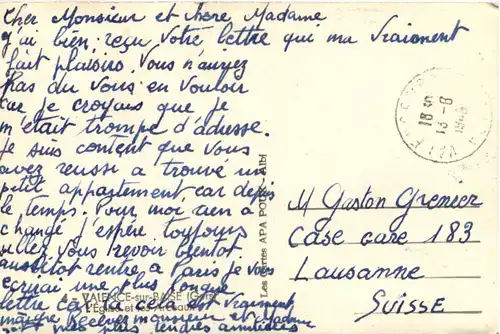 Cher Monsieur et chere Madame
j'ai bien reçu votre lettre qui ma vraiment
fait plaisirs. Vous n'auriez
pas du vous en vouloir
car je croyais que je
m'était trompe d'adresse.
Je suis content que vous
avez reussi a trouvé un
petit appartement car depuis
le temps. Pour moi, rien a
changé j'espère toujours
allez vous revoir bientot
aussitot rentre a Paris je vous
ecrirai une plus longue
lettre car cela est vraiment
maigre. Recevez monsieur et madame
mes plus tendres amitiées
4 - VALENCE-sur-BAISE (Gers)
L'Église et les
Les Cartes APA POUX - Albi
18 H
13-8
M Gaston Grenier
Case Gare 183
Lausanne
SUISSE